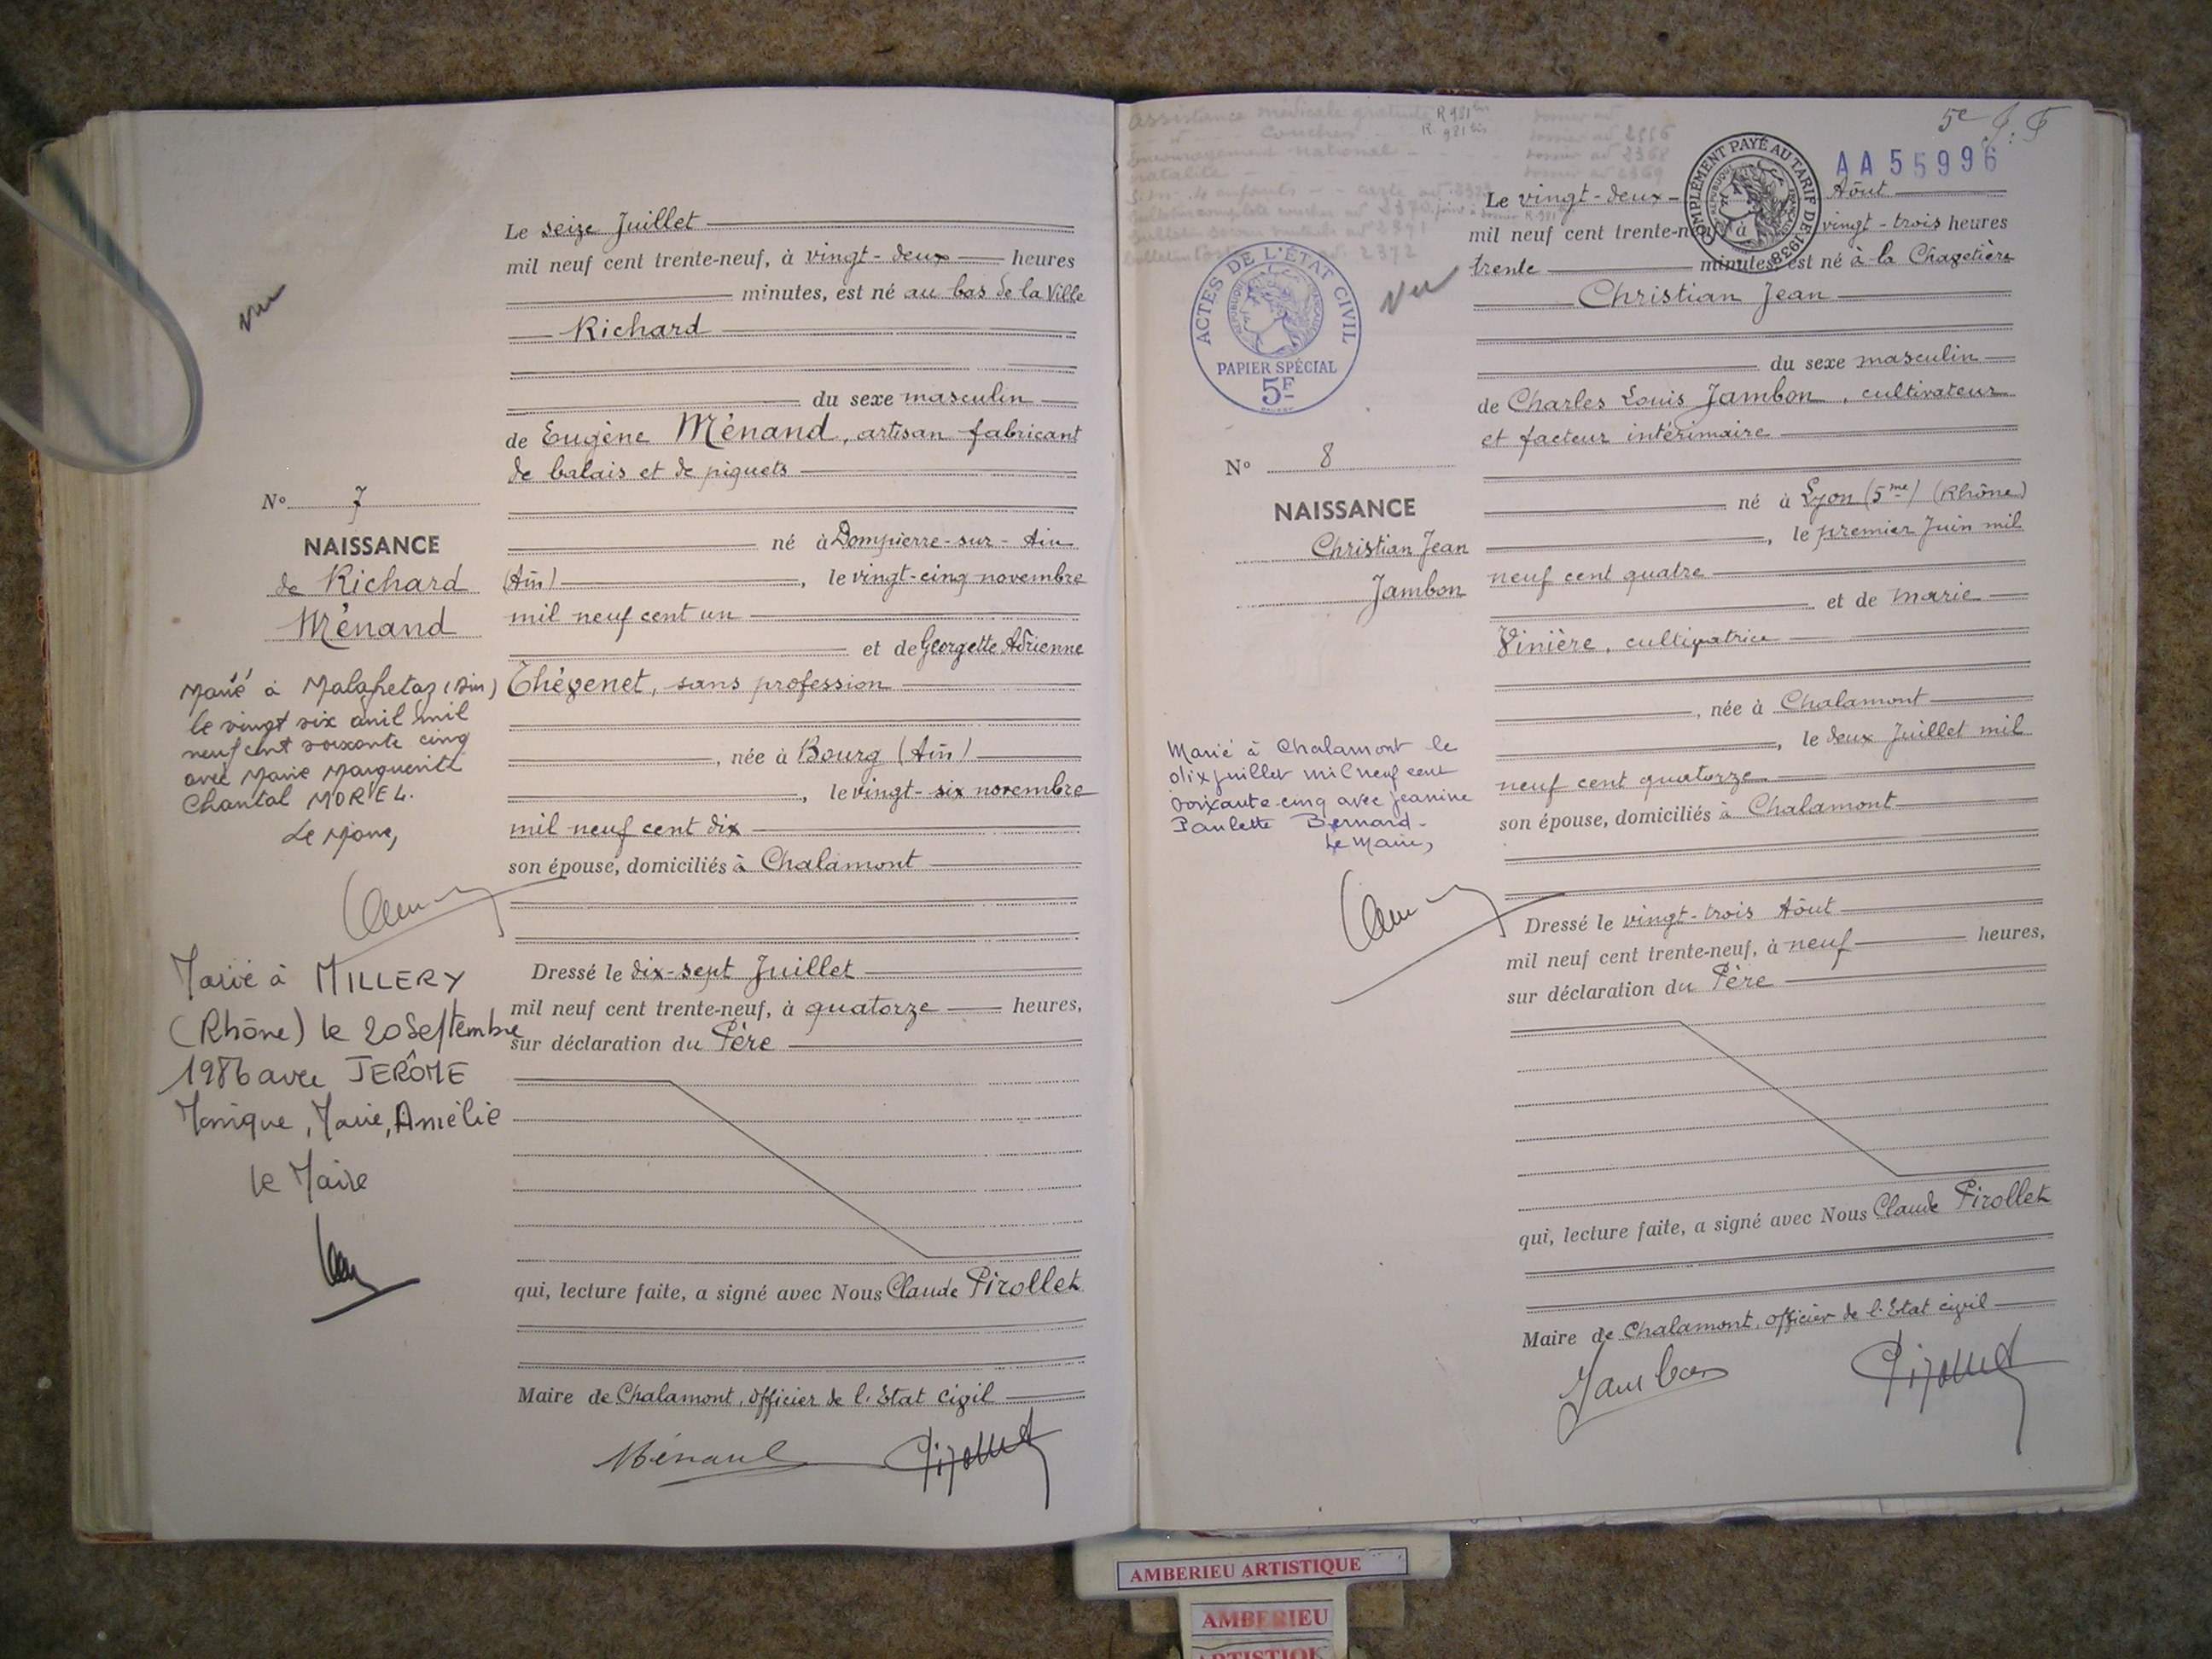 vu
Le seize Juillet
mil neuf cent trente-neuf, à vingt-deux heures
minutes, est né au bas de la Ville
Richard
du sexe masculin
de Eugène Ménand, artisan fabricant
de balais et de piquets
né à Dompierre-sur-Ain
(Ain), le vingt-cinq novembre
mil neuf cent un
et de Georgette Adrienne
Thévenet, sans profession
, née à Bourg (Ain)
, le vingt-six novembre
mil neuf cent dix
son épouse, domiciliés à Chalamont
Dressé le dix-sept Juillet
mil neuf cent trente-neuf, à quatorze heures,
sur déclaration du Père
qui, lecture faite, a signé avec Nous Claude Pirollet
Maire de Chalamont, officier de l'Etat civil
Ménand Pirollet
N° 7
NAISSANCE
de Richard
Ménand
Marié à Malafretaz (Ain)
le vingt six avril mil
neuf cent soixante cinq
avec Marie Marguerite
Chantal MOREL.
Le Maire,
Marié à MILLERY
(Rhône) le 20 Septembre
1986 avec JERÔME
Monique, Marie, Amélie
le Maire
Assistance médicale gratuite R 981 bis
R. 921 bis
couches
2368
Encouragement national
natalité 2369
2372
5e
AA55996
COMPLÉMENT PAYÉ AU TARIF DE 1938
ACTES DE L'ÉTAT CIVIL
RÉPUBLIQUE FRANÇAISE
PAPIER SPÉCIAL
5F
vu
Le vingt-deux Août
mil neuf cent trente-neuf à vingt-trois heures
trente minutes, est né à la Chagetière
Christian Jean
du sexe masculin
de Charles Louis Jambon, cultivateur
et facteur intérimaire
né à Lyon (5me) (Rhône)
, le premier Juin mil
neuf cent quatre
et de Marie
Vinière, cultivatrice
, née à Chalamont
, le deux Juillet mil
neuf cent quatorze
son épouse, domiciliés à Chalamont
Dressé le vingt-trois Août
mil neuf cent trente-neuf, à neuf heures,
sur déclaration du Père
qui, lecture faite, a signé avec Nous Claude Pirollet
Maire de Chalamont, officier de l'Etat civil
Jambon Pirollet
N° 8
NAISSANCE
Christian Jean
Jambon
Marié à Chalamont le
dix juillet mil neuf cent
soixante-cinq avec Jeanine
Paulette Bernard.
Le Maire,
AMBERIEU ARTISTIQUE
AMBERIEU
ARTISTIQUE